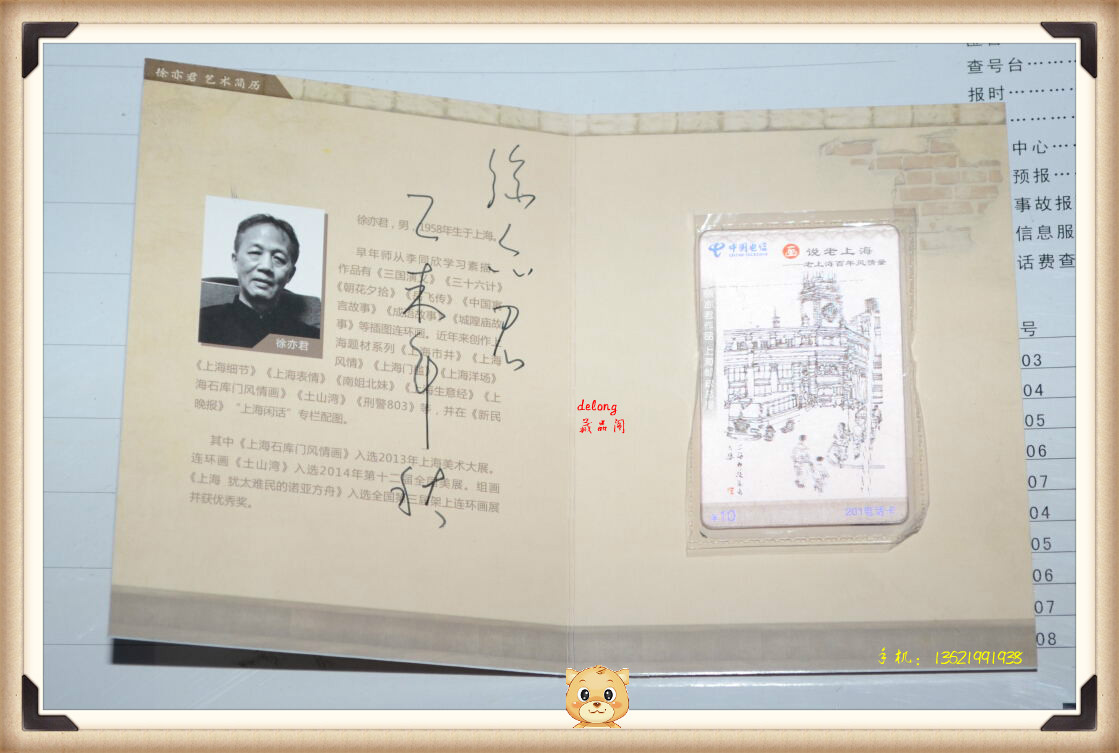 徐亦君 艺术简历
徐亦君
徐亦君，男，1958年生于上海。
早年师从李同欣学习素描，
作品有《三国演义》《三十六计》
《朝花夕拾》《岳飞传》《中国寓
言故事》《成语故事》《城隍庙故
事》等插图连环画。近年来创作上
海题材系列《上海市井》《上海
风情》《上海门槛》《上海洋场》
《上海细节》《上海表情》《南姐北妹》《上海生意经》《上
海石库门风情画》《土山湾》《刑警803》等，并在《新民
晚报》“上海闲话”专栏配图。
其中《上海石库门风情画》入选2013年上海美术大展。
连环画《土山湾》入选2014年第十二届全国美展。组画
《上海 犹太难民的诺亚方舟》入选全国第三届架上连环画展
并获优秀奖。
徐亦君
乙未年秋
中国电信
CHINA TELECOM
画 说老上海
——老上海百年风情录
¥10
201电话卡
delong
藏品阁
查号台………
报时………
中心……
预报……
事故报
信息服
话费查
号
03
04
05
06
07
04
05
06
07
08
手机：13621991938